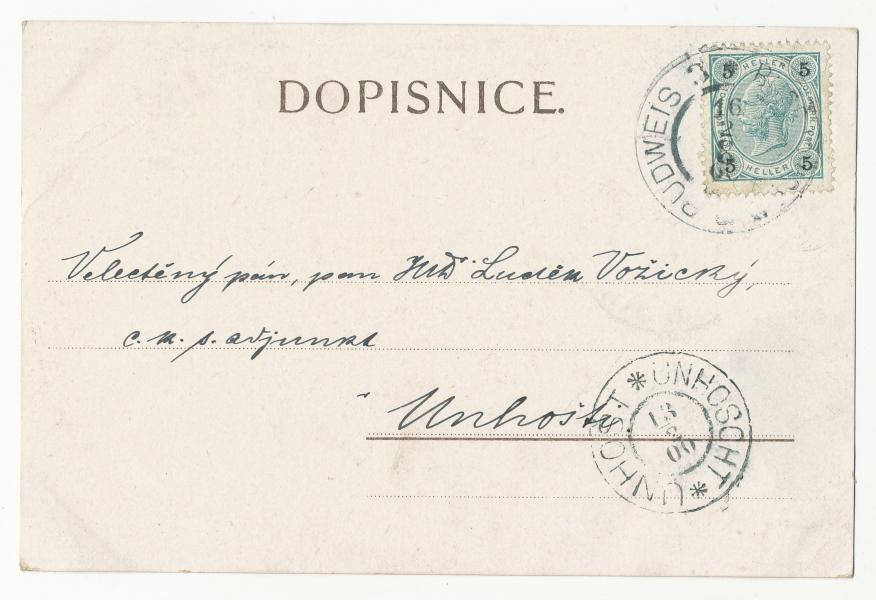 DOPISNICE.
BUDWEIS
5 HELLER 5
5 HELLER 5
Velectěný pán, pan Luděk Vožický,
c. k. s. adjunkt
Unhošť.
* UNHOSCHT * UNHOŠT
00